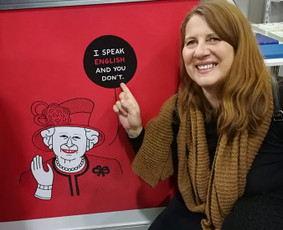 I SPEAK
ENGLISH
AND YOU
DON'T.